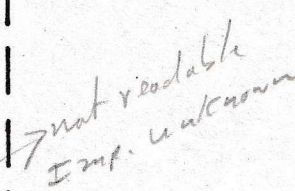 not readable
Imp. unknown